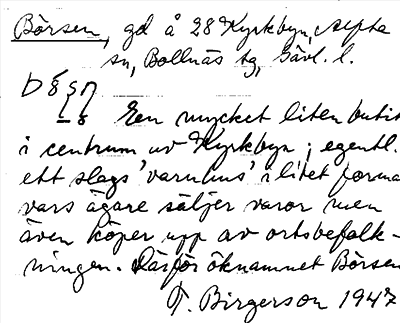 Börsen, gd å 28 Kyrkbyn, Alfta
sn, Bollnäs tg, Gävl. l.
En mycket liten butik
i centrum av Kyrkbyn; egentl.
ett slags 'varuhus' i litet format
vars ägare säljer varor men
även köper upp av ortsbefolk-
ningen. Därför öknamnet Börsen
T. Birgerson 1947